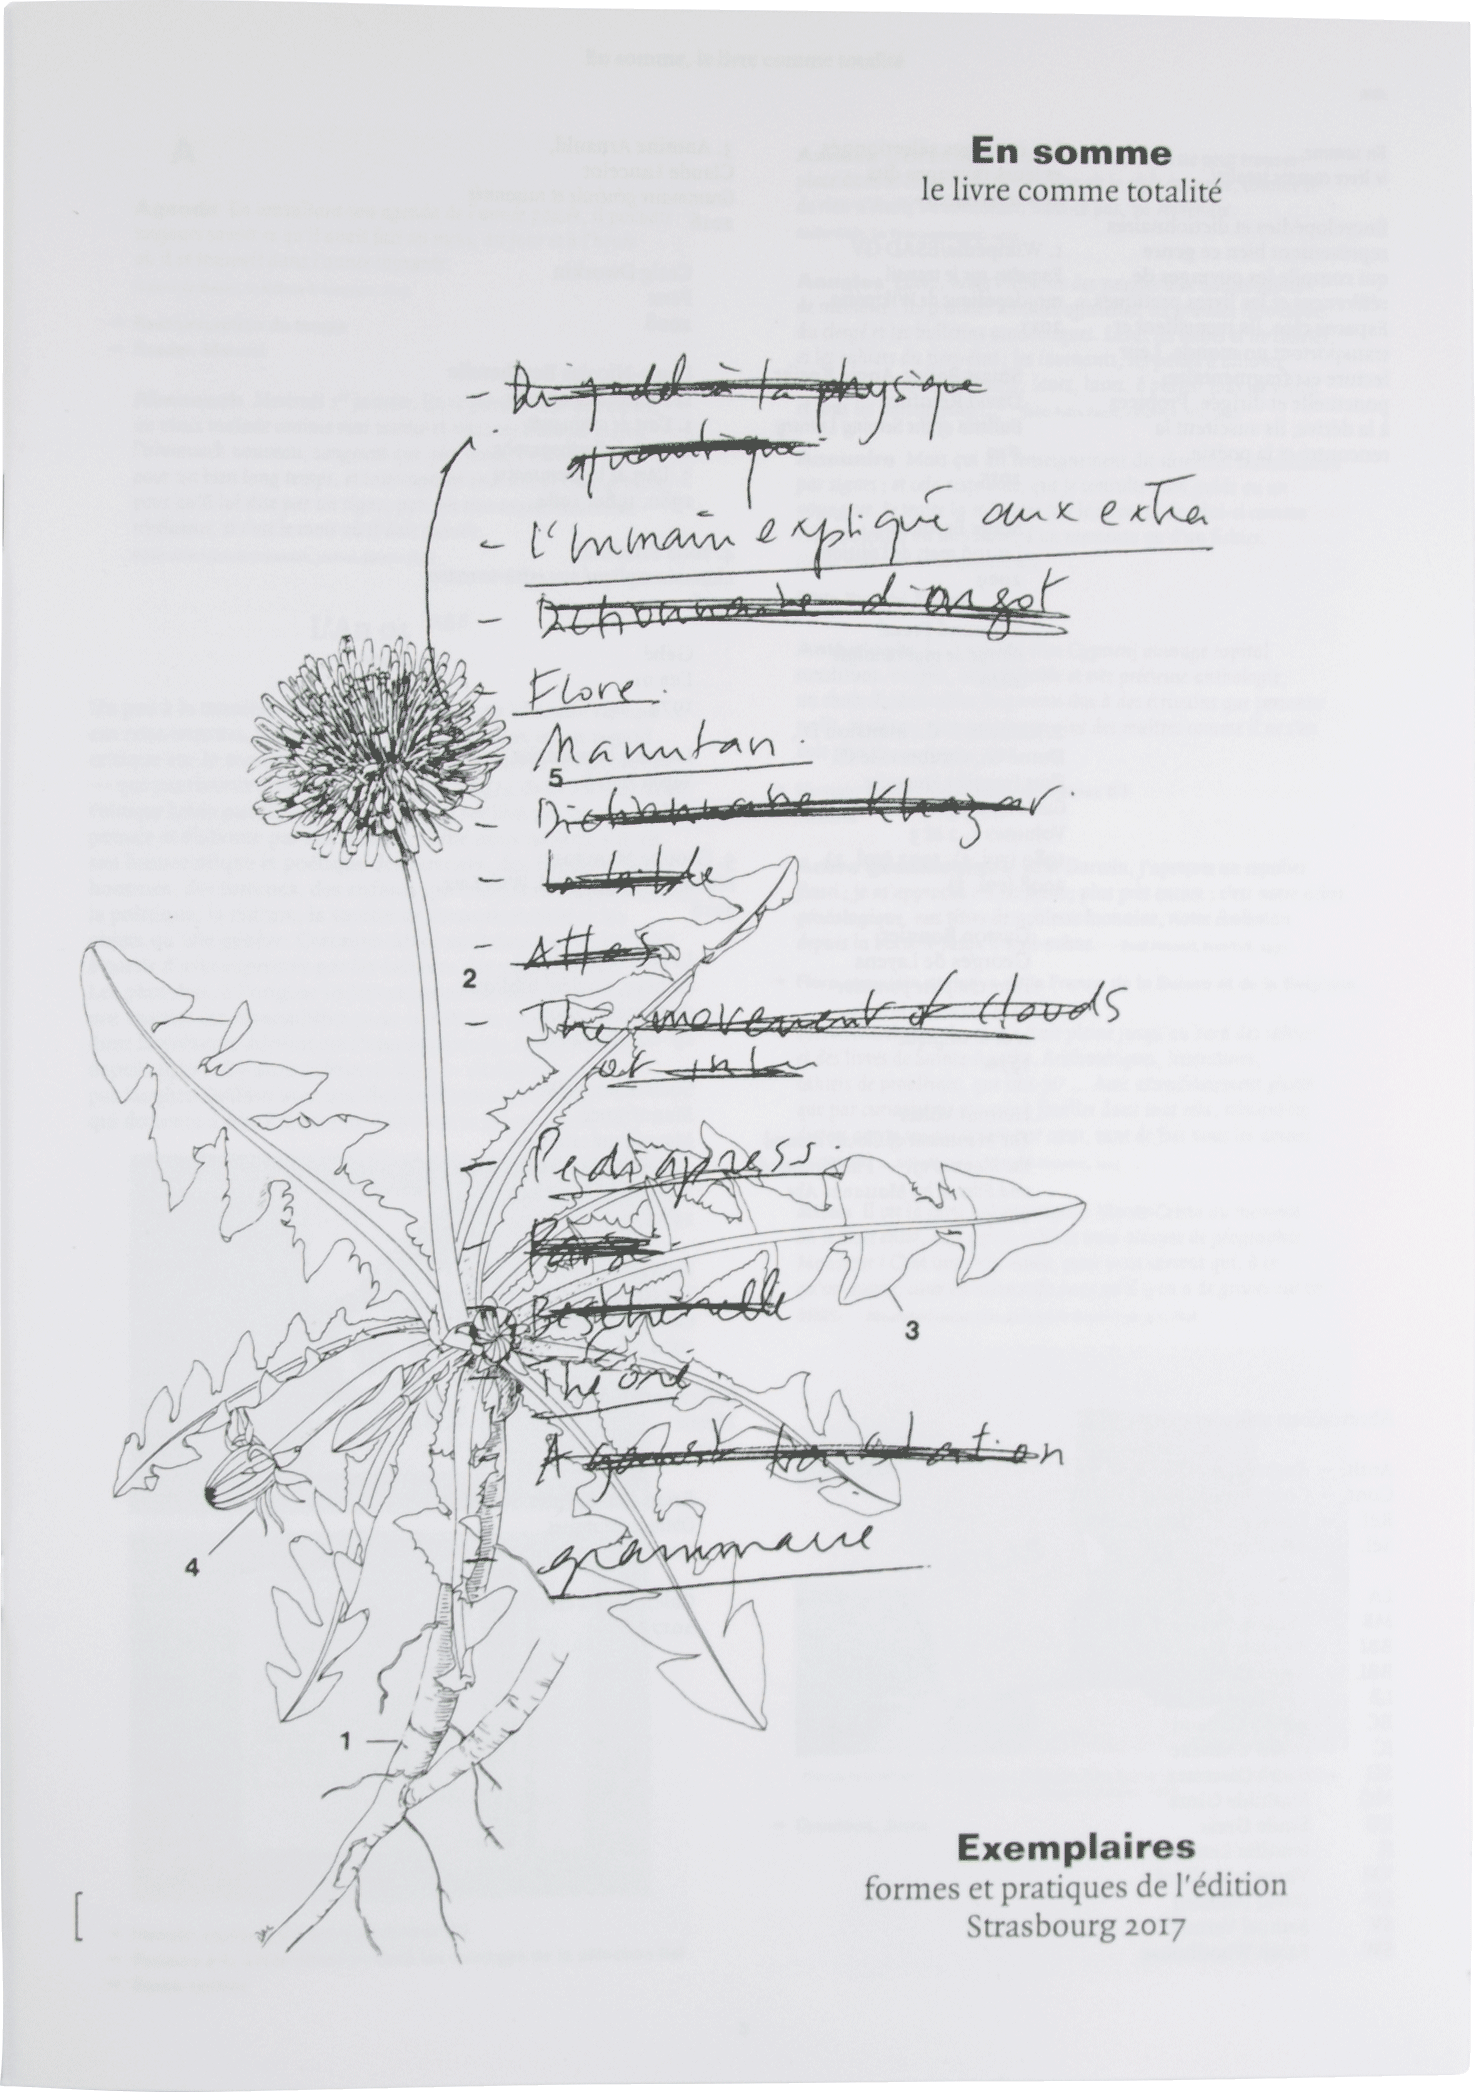 En somme
le livre comme totalité
- Du godel à la physique
quantique
- l'humain expliqué aux extra
- Dictionnaire d'argot
- Flore.
Manutan.
5
- Dictionnaire Khazar.
- La bible
- Atlas
2
- The movement of clouds
- Pediapress.
Bescherelle
3
- Théorie
- Against translation
4
- grammaire
1
Exemplaires
formes et pratiques de l'édition
Strasbourg 2017
[